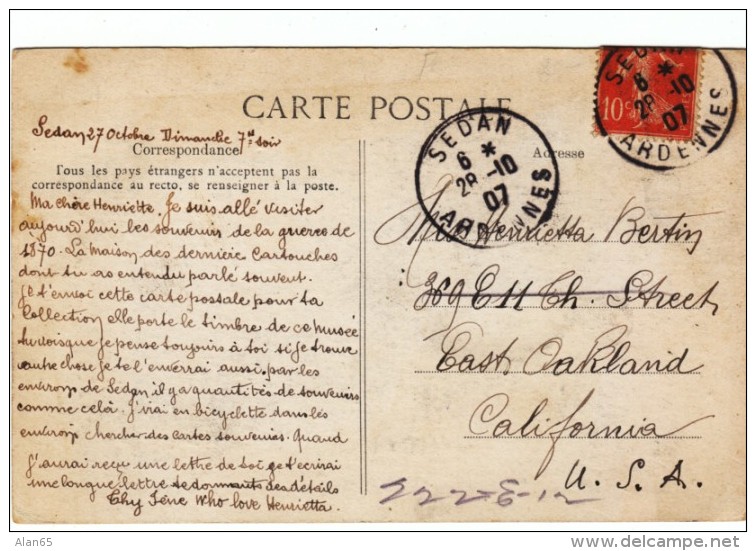 CARTE POSTALE
Sedan 27 Octobre Dimanche 7h soir
Correspondance
Tous les pays étrangers n'acceptent pas la
correspondance au recto, se renseigner à la poste.
Ma chère Henriette. Je suis allé visiter
aujourd'hui les souvenirs de la guerre de
1870. La maison des dernière Cartouches
dont tu as entendu parlé souvent.
Je t'envoi cette carte postale pour ta
Collection elle porte le timbre de ce musée
tu vois que je pense toujours à toi si je trouve
autre chose je te l'enverrai aussi, par les
environs de Sedan il y a quantités de souvenirs
comme celà. J'irai en bicyclette dans les
environs chercher des cartes souvenirs. Quand
J'aurai reçu une lettre de toi je t'ecrirai
une longue lettre donnant des détails
Thy Who love Henrietta.
Adresse
Miss Henrietta Bertin
369 E 11 Th. Street
East Oakland
California
U. S. A.
SEDAN
6 *
28 -10
07
ARDENNES
10c
SEDAN
6 *
28 -10
07
ARDENNES
Alan65
delcampe.net